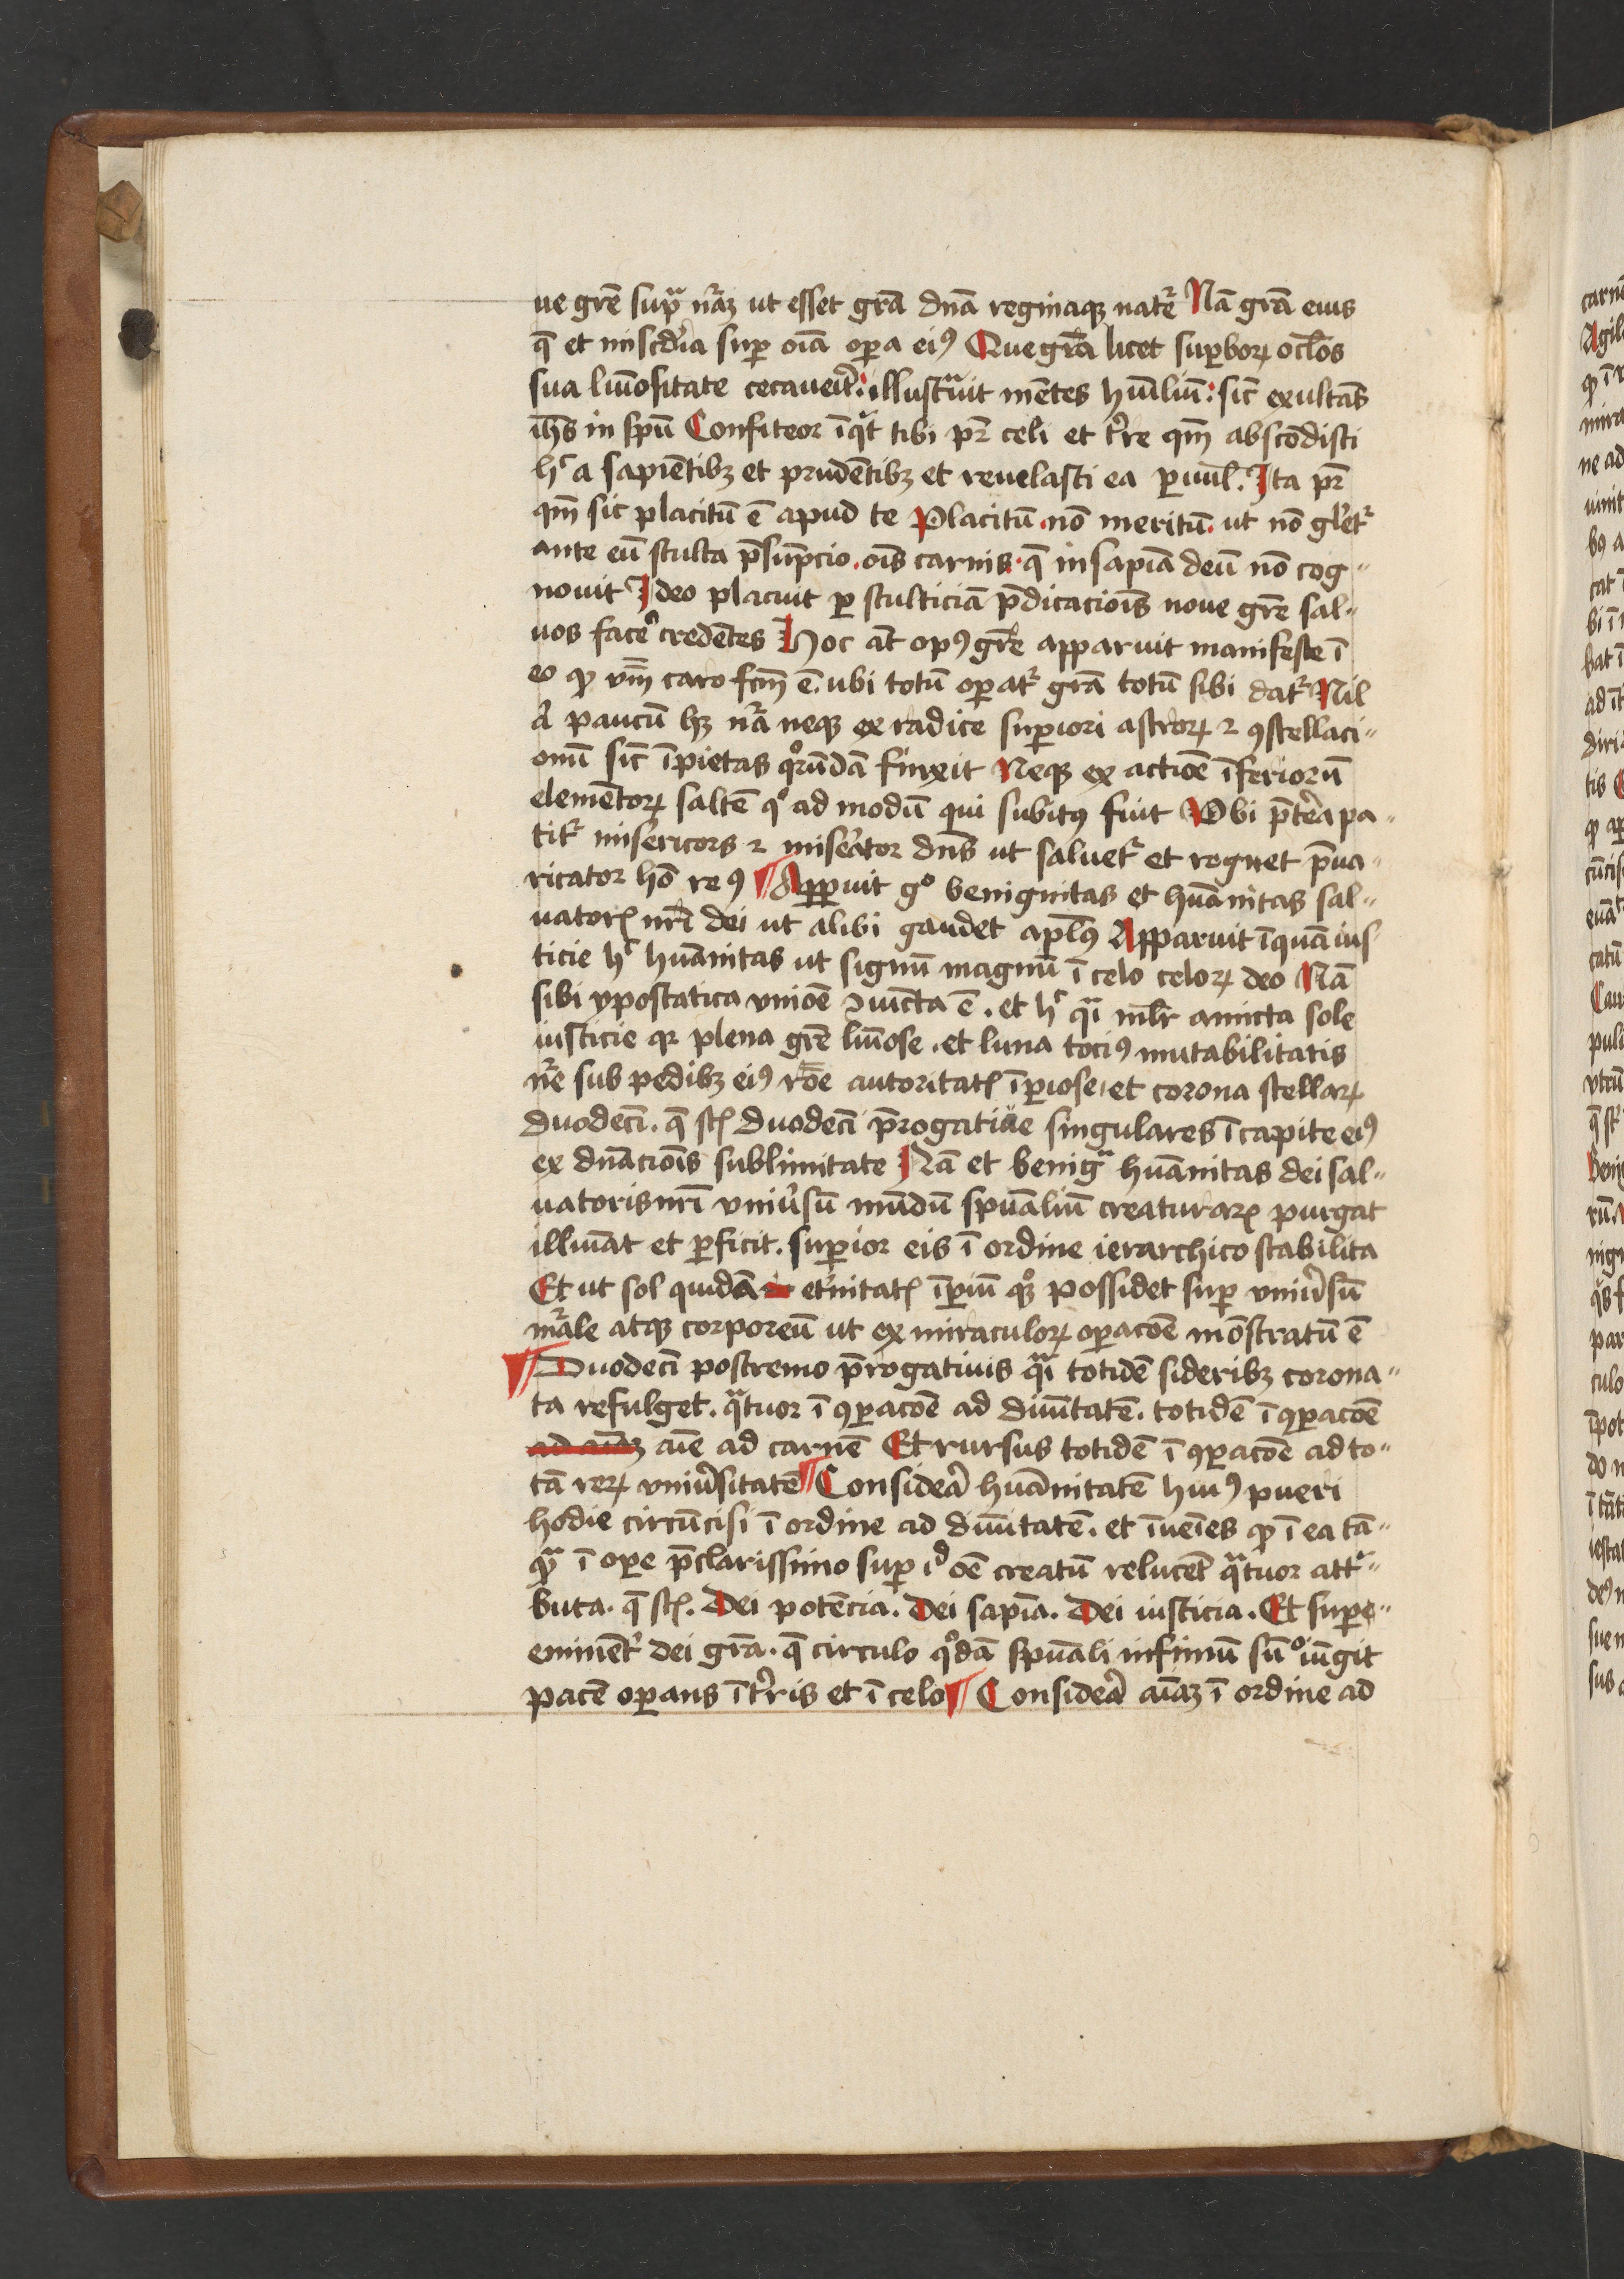 ue grē sup̲ᵃ nr̄aꝫ ut esset grā dnā reginaqꝫ natr̄e Nā grā eius
q̄ et miscd̓ia suꝑ oīa oꝑa eiꝰ Que grā licet suꝑborꝝ oclōs
sua lūmositate cecauer̄t: illustᵃuit mētes hūilium: sic̄ exultās
ih̄s in spū Confiteor īqͥt tibi pr̄ celi et t̓re qm̄ abscōdisti
hͨ a sapiētibꝫ et prudētibꝫ et reuelasti ea ꝑuul̄. Ita pr̄
qm̄ sic placitū ē apud te Placitū. nō meritū. ut nō gl̓etᷣ
ante eū stulta p̄sūpcio. oīs carnis. q̄ in sapīa deū nō cog⸗
nouit Ideo placuit ꝑ stulticiā p̄dicacioīs noue grē sal⸗
uos face᷒ credētes Hoc āt opꝰ grē apparuit manifeste ī
eo ꝙ vm̄ caro fcm̄ ē. ubi totū oꝑatᷣ grā totū sibi datᷣ Nil
a᷒ paucū hꝫ nr̄a neqꝫ ex radice suꝑiori astrorꝝ ⁊ ꝯstellaci⸗
onū sic̄ īpietas qͦrūdā finxit Neqꝫ ex actiōe īferiorū
elemētorꝝ saltē qͦ ad modū qui subitꝰ fuit Vbi p̄t̓ea pa⸗
titᷣ misericors ⁊ mise᷒ator dn̄s ut saluetᷣ et regnet p̄ua⸗
ricator hō reꝰ ¶ Apꝑuit gͦ benignitas et hūanitas sal⸗
uatorꝭ nr̄i dei ut alibi gaudet apl̄ꝰ Apparuit īquā ius
ticie hͨ hūanitas ut signū magnū ī celo celorꝝ deo Nā
sibi ypostatica vniōe ꝯiūcta ē. et hͨ qͣi ml̄r amicta sole
iusticie qꝛ plena grē lūmose. et luna tociꝰ mutabilitatis
nr̄e sub pedibꝫ eiꝰ rōe autoritatꝭ īꝑiose. et corona stellarꝝ
duodecī. q̄ st̄ꝭ duodecī p̄rogatiue singulares ī capite eiꝰ
ex dnācioīs sublimitate Nā et benigᵃ hūanitas dei sal⸗
uatoris nr̄i vniu᷒sū mūdū spūaliū creaturarꝝ purgat
illūiat et ꝑficit. suꝑior eis ī ordine ierarchico stabilita
Et ut sol quidā et᷒nitatꝭ īꝑiū qͦꝫ possidet suꝑ vniu᷒sū
mr̄ale atqꝫ corporeū ut ex miraculorꝝ oꝑacōe mōstratū ē
¶ Duodecī postremo p̄rogatiuis qͣi totidē sideribꝫ corona⸗
ta refulget. qͣtuor ī ꝯꝑacōe ad diuītatē. totidē ī ꝯꝑacōe
ad aīaꝫ aīe ad carnē Et rursus totidē ī ꝯꝑacōe ad to⸗
tā rerꝝ vniu᷒sitatē ¶ Conside᷒a hūanitatē huiꝰ pueri
hodie circūcisi ī ordine ad diuītatē. et īueīes ꝙ ī ea tā⸗
qᵃ ī oꝑe p̄clarissimo suꝑ īᵈ oē creatū relucēt qͣtuor attͥ⸗
buta. q̄ st̄ꝭ. Dei potēcia. Dei sapīa. Dei iusticia. Et suꝑe⸗
eminēt᷒ dei grā. q̄ circulo qͦdā spūali infimū sūͦ iūgit
pacē oꝑans ī t᷒ris et ī celo ¶ Conside᷒a aīaꝫ ī ordine ad